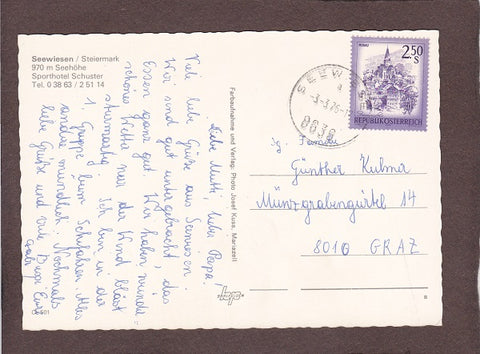 Seewiesen / Steiermark
970 m Seehöhe
Sporthotel Schuster
Tel. 0 38 63 / 2 51 14
Liebe Mutti, lieber Papa!
Viele liebe Grüße aus Seewiesen.
Wir sind gut untergebracht, das
Essen ganz gut. Wir haben
schönes Wetter nur der Wind bläst
sturmartig. Ich bin in der
1. Gruppe beim Schifahren. Alles
andere mündlich. Nochmals
liebe Grüße und viele
Farbaufnahme und Verlag: Photo Josef Kuss, Mariazell
2.50
S
REPUBLIK ÖSTERREICH
Familie
Günther Kulmer
Münzgrabengürtel 14
8010 GRAZ